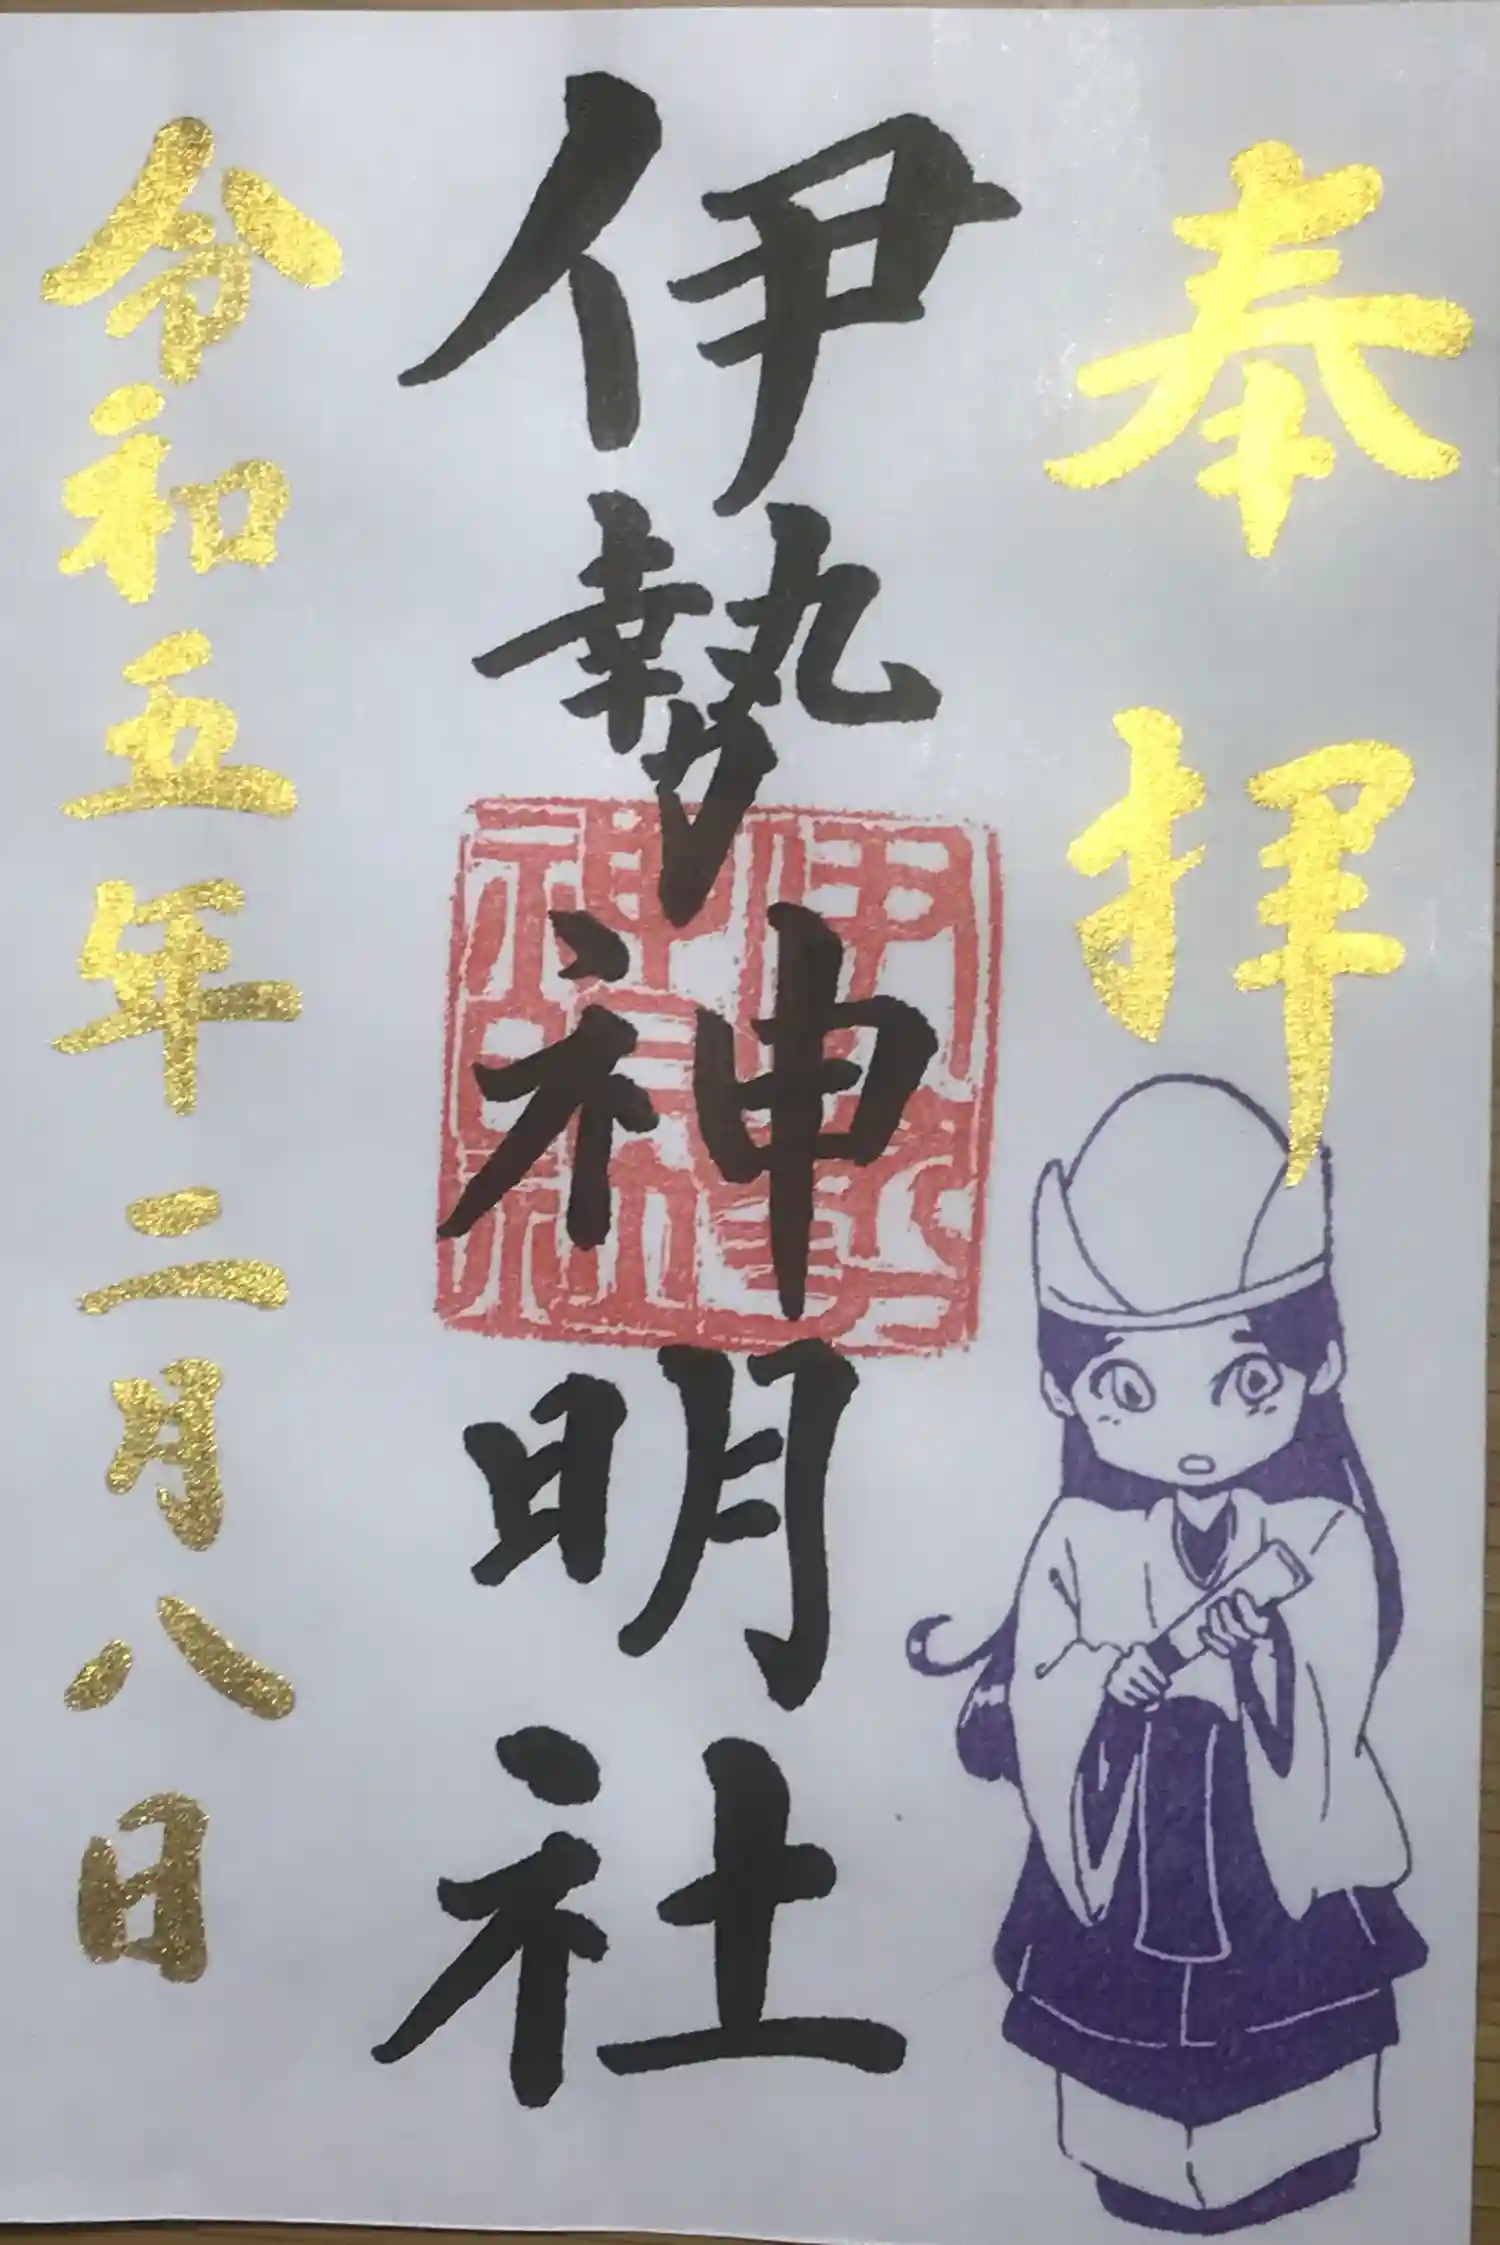 奉拝
伊勢神明社
伊勢
神明社
令和五年二月八日